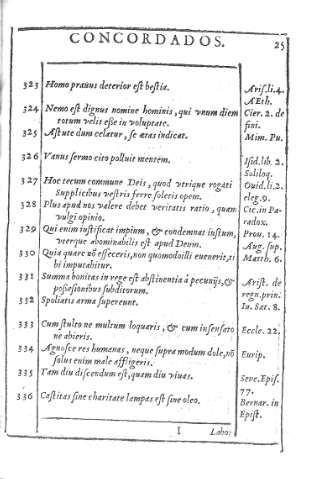 CONCORDADOS. 25
323 Homo prauus deterior est bestia. Aris.li.4.
AEth.
324 Nemo est dignus nomine hominis, qui vnum diem Cicr. 2. de
totum velit esse in voluptate. fini.
325 Astute dum celatur, se ætas indicat. Mim. Pu.
326 Vanus sermo cito polluit mentem. Isid. lib. 2.
Soliloq.
327 Hoc tecum commune Deis, quod vtrique rogati Ouid.li.2.
Supplicibus vestris ferre soletis opem. eleg.9.
328 Plus apud nos valere debet veritatis ratio, quam Cic. in Pa-
vulgi opinio. radox.
329 Qui enim iustificat impium, & condemnat iustum, Prou. 14.
vterque abominabilis est apud Deum. Aug. sup.
330 Quia quare nõ effeceris, non quomodo illi euenerit, si Matth. 6.
bi imputabitur.
331 Summa bonitas in rege est abstinentia à pecunijs, & Arist. de
possessionibus subditorum. regn. prin.
332 Spoliatis arma supersunt. Iu. Sat. 8.
333 Cum stulto ne multum loquaris, & cum insensato Eccle. 22.
ne abieris.
334 Agnosce res humanas, neque supra modum dole, nõ Eurip.
solus enim male affligeris.
335 Tam diu discendum est, quam diu viuas. Sene. Epis.
77.
336 Castitas sine charitate lampas est sine oleo. Bernar. in
Epist.
I Labor